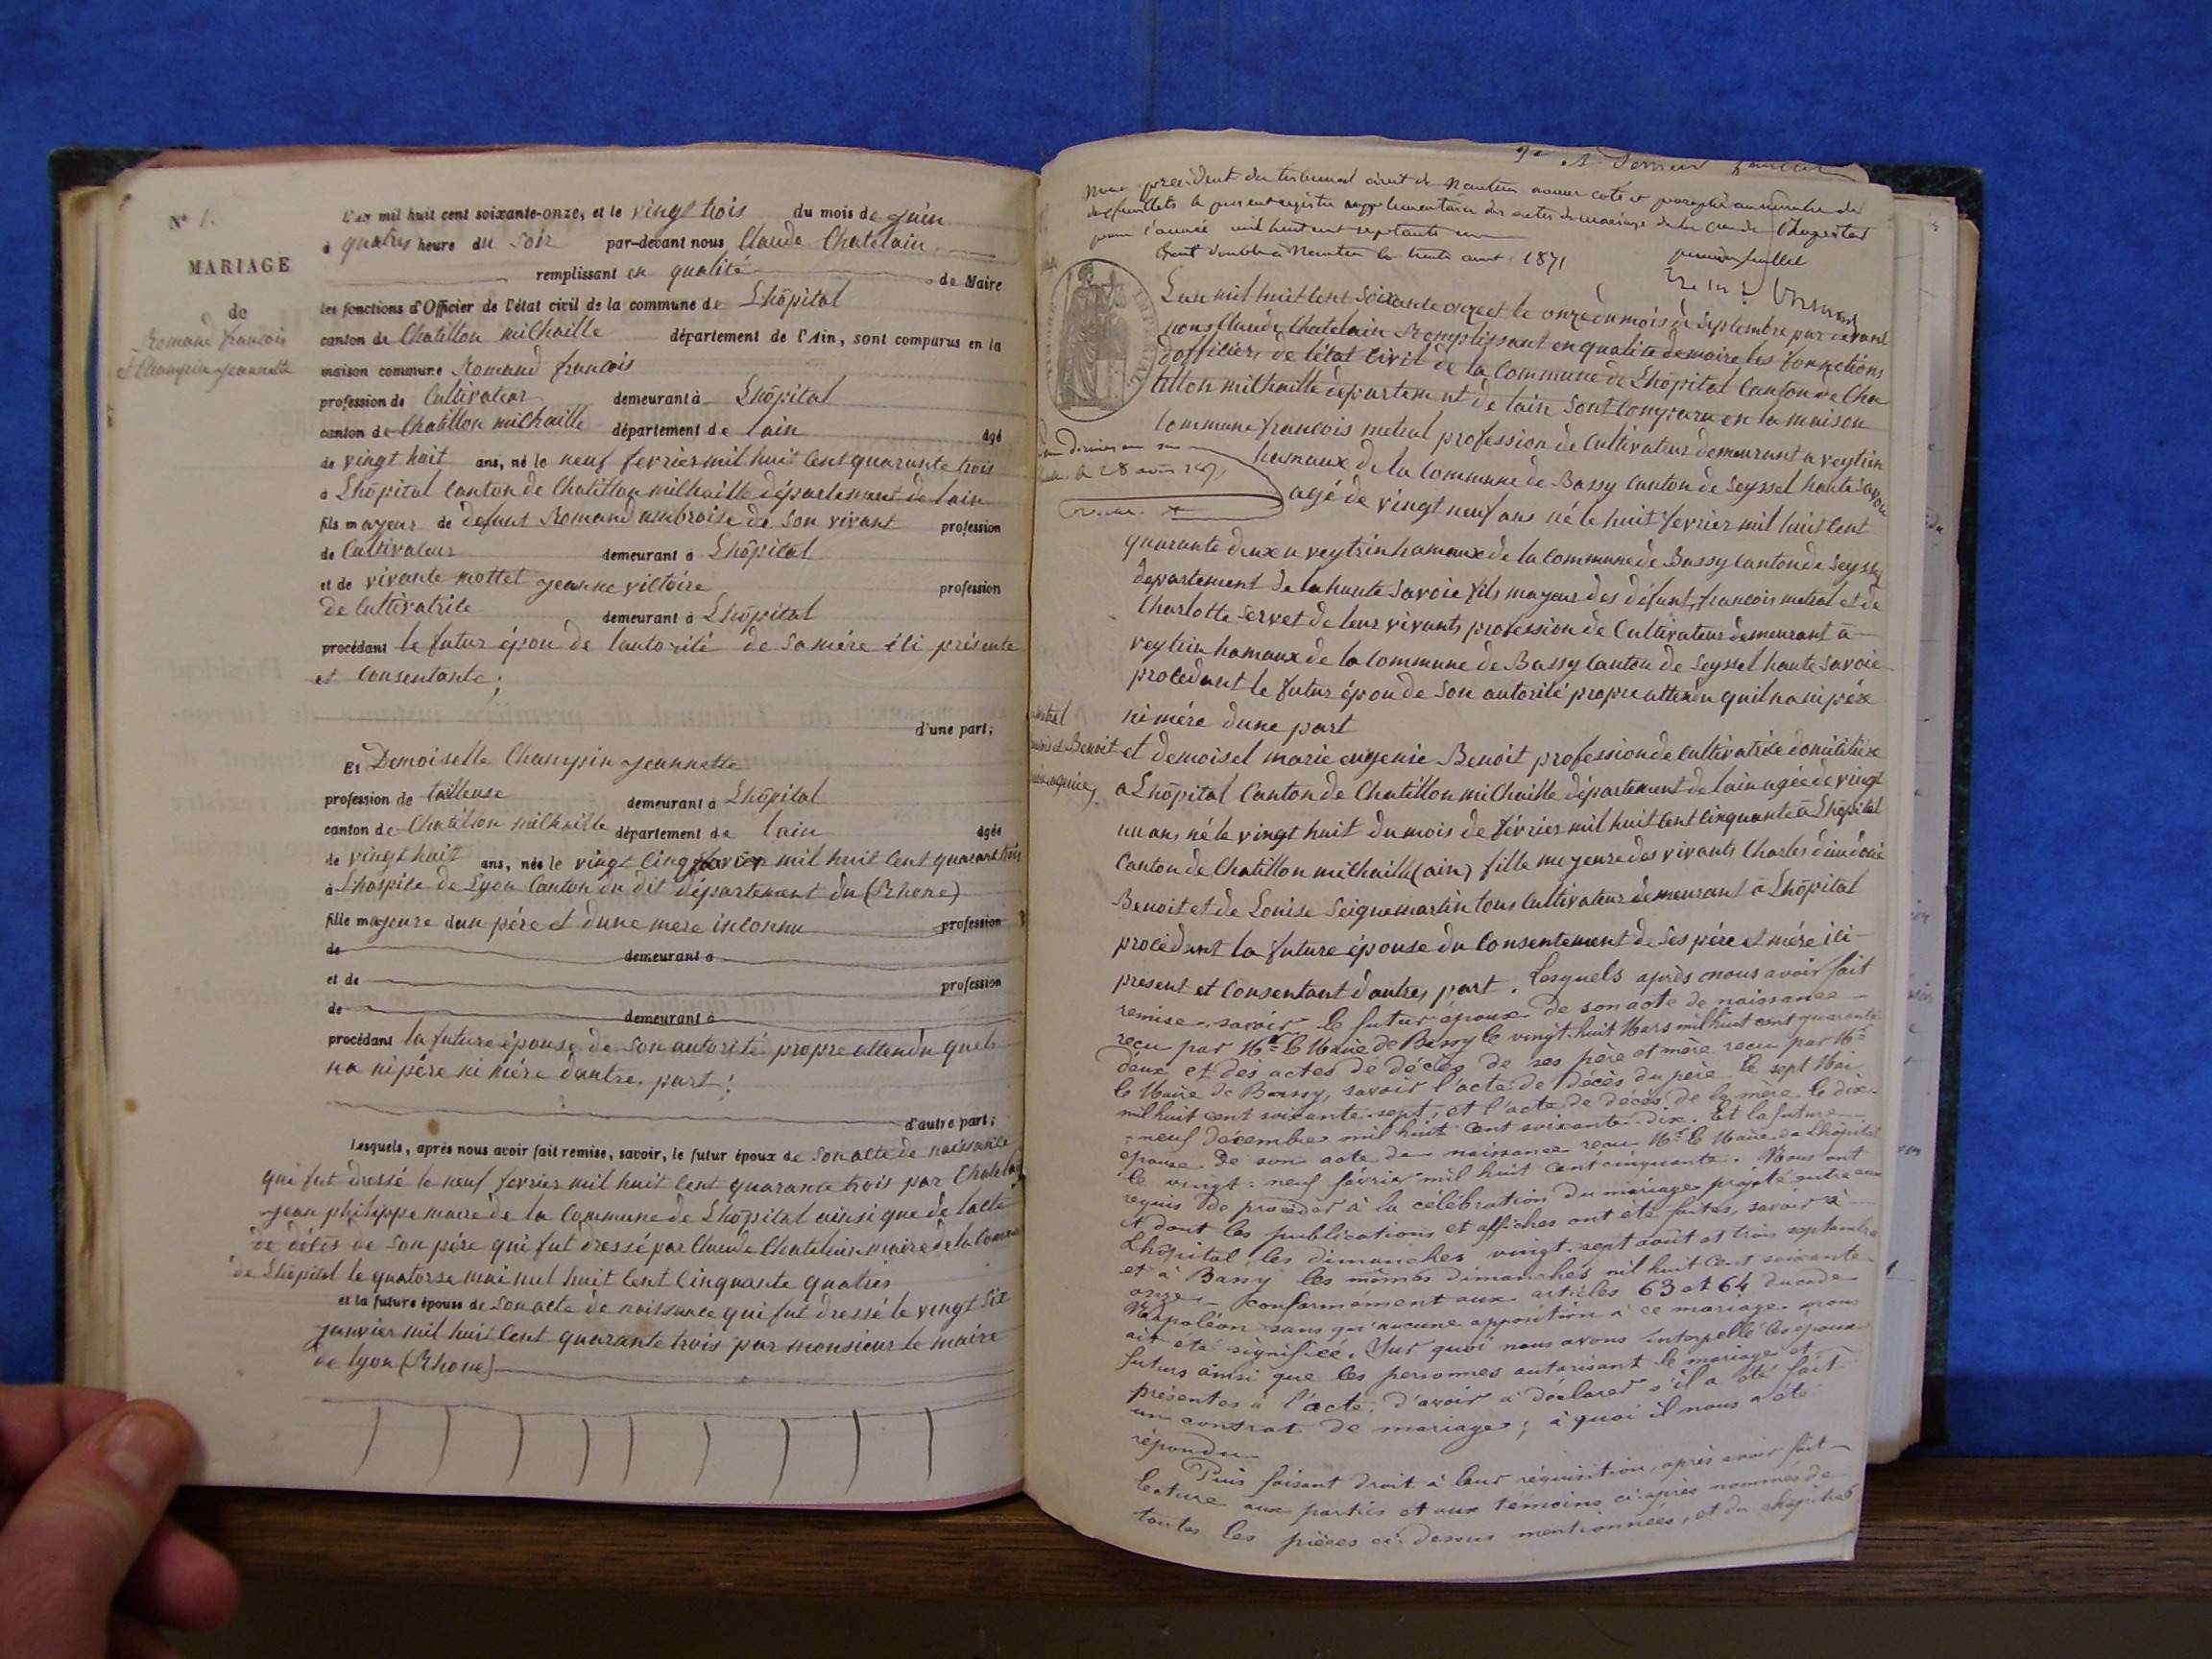 N° 1.
MARIAGE
de
Romand francois
et Champin Jeannette
L'an mil huit cent soixante-onze, et le vingt trois du mois de Juin
à quatres heure du Soir par-devant nous Claude Chatelain
remplissant en qualité de Maire
les fonctions d'Officier de l'état civil de la commune de Lhôpital
canton de Chatillon milhaille département de l'Ain, sont comparus en la
maison commune Romand francois
profession de Cultivateur demeurant à Lhôpital
canton de Chatillon milhaille département de lain âgé
de vingt huit ans, né le neuf fevrier mil huit Cent quarante trois
à Lhôpital Canton de Chatillon milhaille département de lain
fils mayeur de defunt Romand ambroise de Son vivant profession
de Cultivateur demeurant à Lhôpital
et de vivante mottet Jeanne victoire profession
de Cultivatrice demeurant à Lhôpital
procédant le futur épou de lautorité de Samére ili présente
et Consentante;
d'une part;
Et Demoiselle Champin Jeannette
profession de tailleuse demeurant à Lhôpital
canton de Chatillon milhaille département de lain âgée
de vingt huit ans, née le vingt Cinq Janvier mil huit Cent quarant trois
à Lhospice de Lyon Canton du dit département du (Rhone)
fille mayeure dun pére et dune mere inconnu profession
de demeurant à
et de profession
de demeurant à
procédant la future épouse de Son autorité propre attendu quels
na ni pére ni mére dautre part;
d'autre part;
Lesquels, après nous avoir fait remise, savoir, le futur époux de Son acte de naissance
qui fut dressé le neuf fevrier mil huit Cent quarante trois par Chatelain
Jean philippe maire de la Commune de Lhôpital ainsi que de lacte
de décés de Son pére qui fut dressé par Claude Chatelain maire de la Comune
de Lhôpital le quatorse mai mil huit Cent Cinquante quatres
et la future épouse de Son acte de naissance qui fut dressé le vingt Six
Janvier mil huit Cent quarante trois par monsieur le maire
de Lyon (Rhone)
président du tribunal civil de Nantua avons coté et paraphé au nombre de
feuillets le present registre supplémentaire des actes de mariage de la
pour l'année mil huit cent septante un
Nantua le trente aout 1871 premier feuillet
Lan mil huit Cent Soixante onze et le onze du mois de Septembre par devant
nous Claude Chatelain Remplissant en qualité de maire les fonnctions
dofficiers de létat Civil de la Commune de Lhôpital Canton de Cha
tillon milhaille département de lain Sont Comparu en la maison
Commune francois metral profession de Cultivateur demeurant a veytrin
hamaux de la Commune de Bassy Canton de Seyssel haute Savoie
agé de vingt neuf ans né le huit fevrier mil huit Cent
quarante deux a veytrin hamaux de la Commune de Bassy Canton de Seyssel
département de la haute Savoie fils mayeur des défunt, francois metral et de
Charlotte Servet de leur vivants profession de Cultivateur demeurant à
veytrin hamaux de la Commune de Bassy Canton de Seyssel haute Savoie
procedant le futur épou de Son autorité propre attendu quil na ni pére
ni mére dune part
et demoisel marie eugenie Benoit profession de Cultivatrice domiciliée
a Lhôpital Canton de Chatillon milhaille département de lain agée de vingt
un ans né le vingt huit du mois de février mil huit Cent Cinquante à Lhôpital
Canton de Chatillon milhaille (ain) fille mayeure des vivants Charles
Benoit et de Louise Seignemartin tous Cultivateur demeurant à Lhôpital
procédant la future épouse du Consentement de Ses pére et mére ili
present et Consentant dautres part. Lesquels après nous avoir fait
remise, savoir Le futur époux de son acte de naissance
reçu par Mr le Maire de Bassy le vingt-huit Mars mil huit cent quarante
deux et des actes de décès de ses père et mère reçu par Mr
le Maire de Bassy, savoir l'acte de décès du père le sept Mai
mil huit cent soixante-sept, et l'acte de décès de la mère le dix-
neuf décembre mil huit cent soixante-dix. Et la future
épouse de son acte de naissance reçu Mr le Maire de Lhôpital
le vingt-neuf février mil huit cent cinquante. Nous ont
requis de procéder à la célébration du mariage projeté entre eux
et dont les publications et affiches ont été faites, savoir à
Lhôpital, les dimanches vingt-sept août et trois septembre
et à Bassy les mêmes dimanches mil huit cent soixante
onze conformément aux articles 63 et 64 du code
Napoléon sans qu'aucune opposition à ce mariage nous
ait été signifiée. Sur quoi nous avons interpellé les époux
futurs ainsi que les personnes autorisant le mariage et
présentes à l'acte, d'avoir à déclarer s'il a été fait
un contrat de mariage; à quoi il nous a été
répondu
Puis faisant droit à leur réquisition, après avoir fait
lecture aux parties et aux témoins ci-après nommés de
toutes les pièces ci-dessus mentionnées, et du chapitre 6